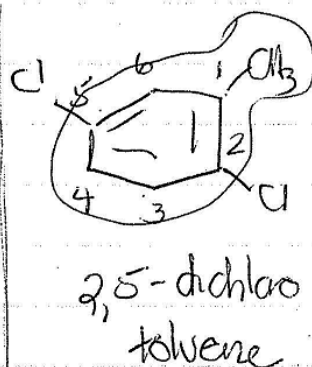 Cl 5 6 1 CH3
2
4 3 Cl
2,5-dichloro
toluene